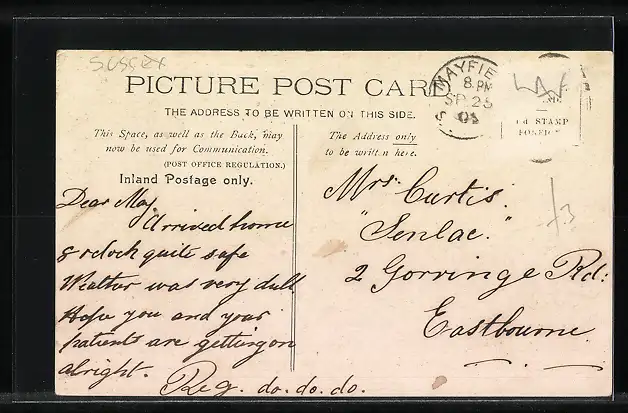 SUSSEX
PICTURE POST CARD
MAYFIE
8. PM
SP 25
THE ADDRESS TO BE WRITTEN ON THIS SIDE.
STAMP
FOREIGN
This Space, as well as the Back, may
now be used for Communication.
(POST OFFICE REGULATION.)
Inland Postage only.
The Address only
to be written here.
Dear May,
Arrived home
8 oclock quite safe
Weather was very dull
Hope you and your
patients are getting on
alright.
Reg. do. do. do.
Mrs. Curtis.
"Senlac."
2 Gorringe Rd:
Eastbourne.